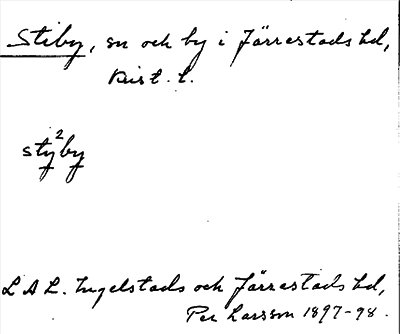 Stiby, sn och by i Järrestads hd,
Krist. l.
sty²by
L A L. Ingelstads och Järrestads hd,
Per Larsson 1897-98.